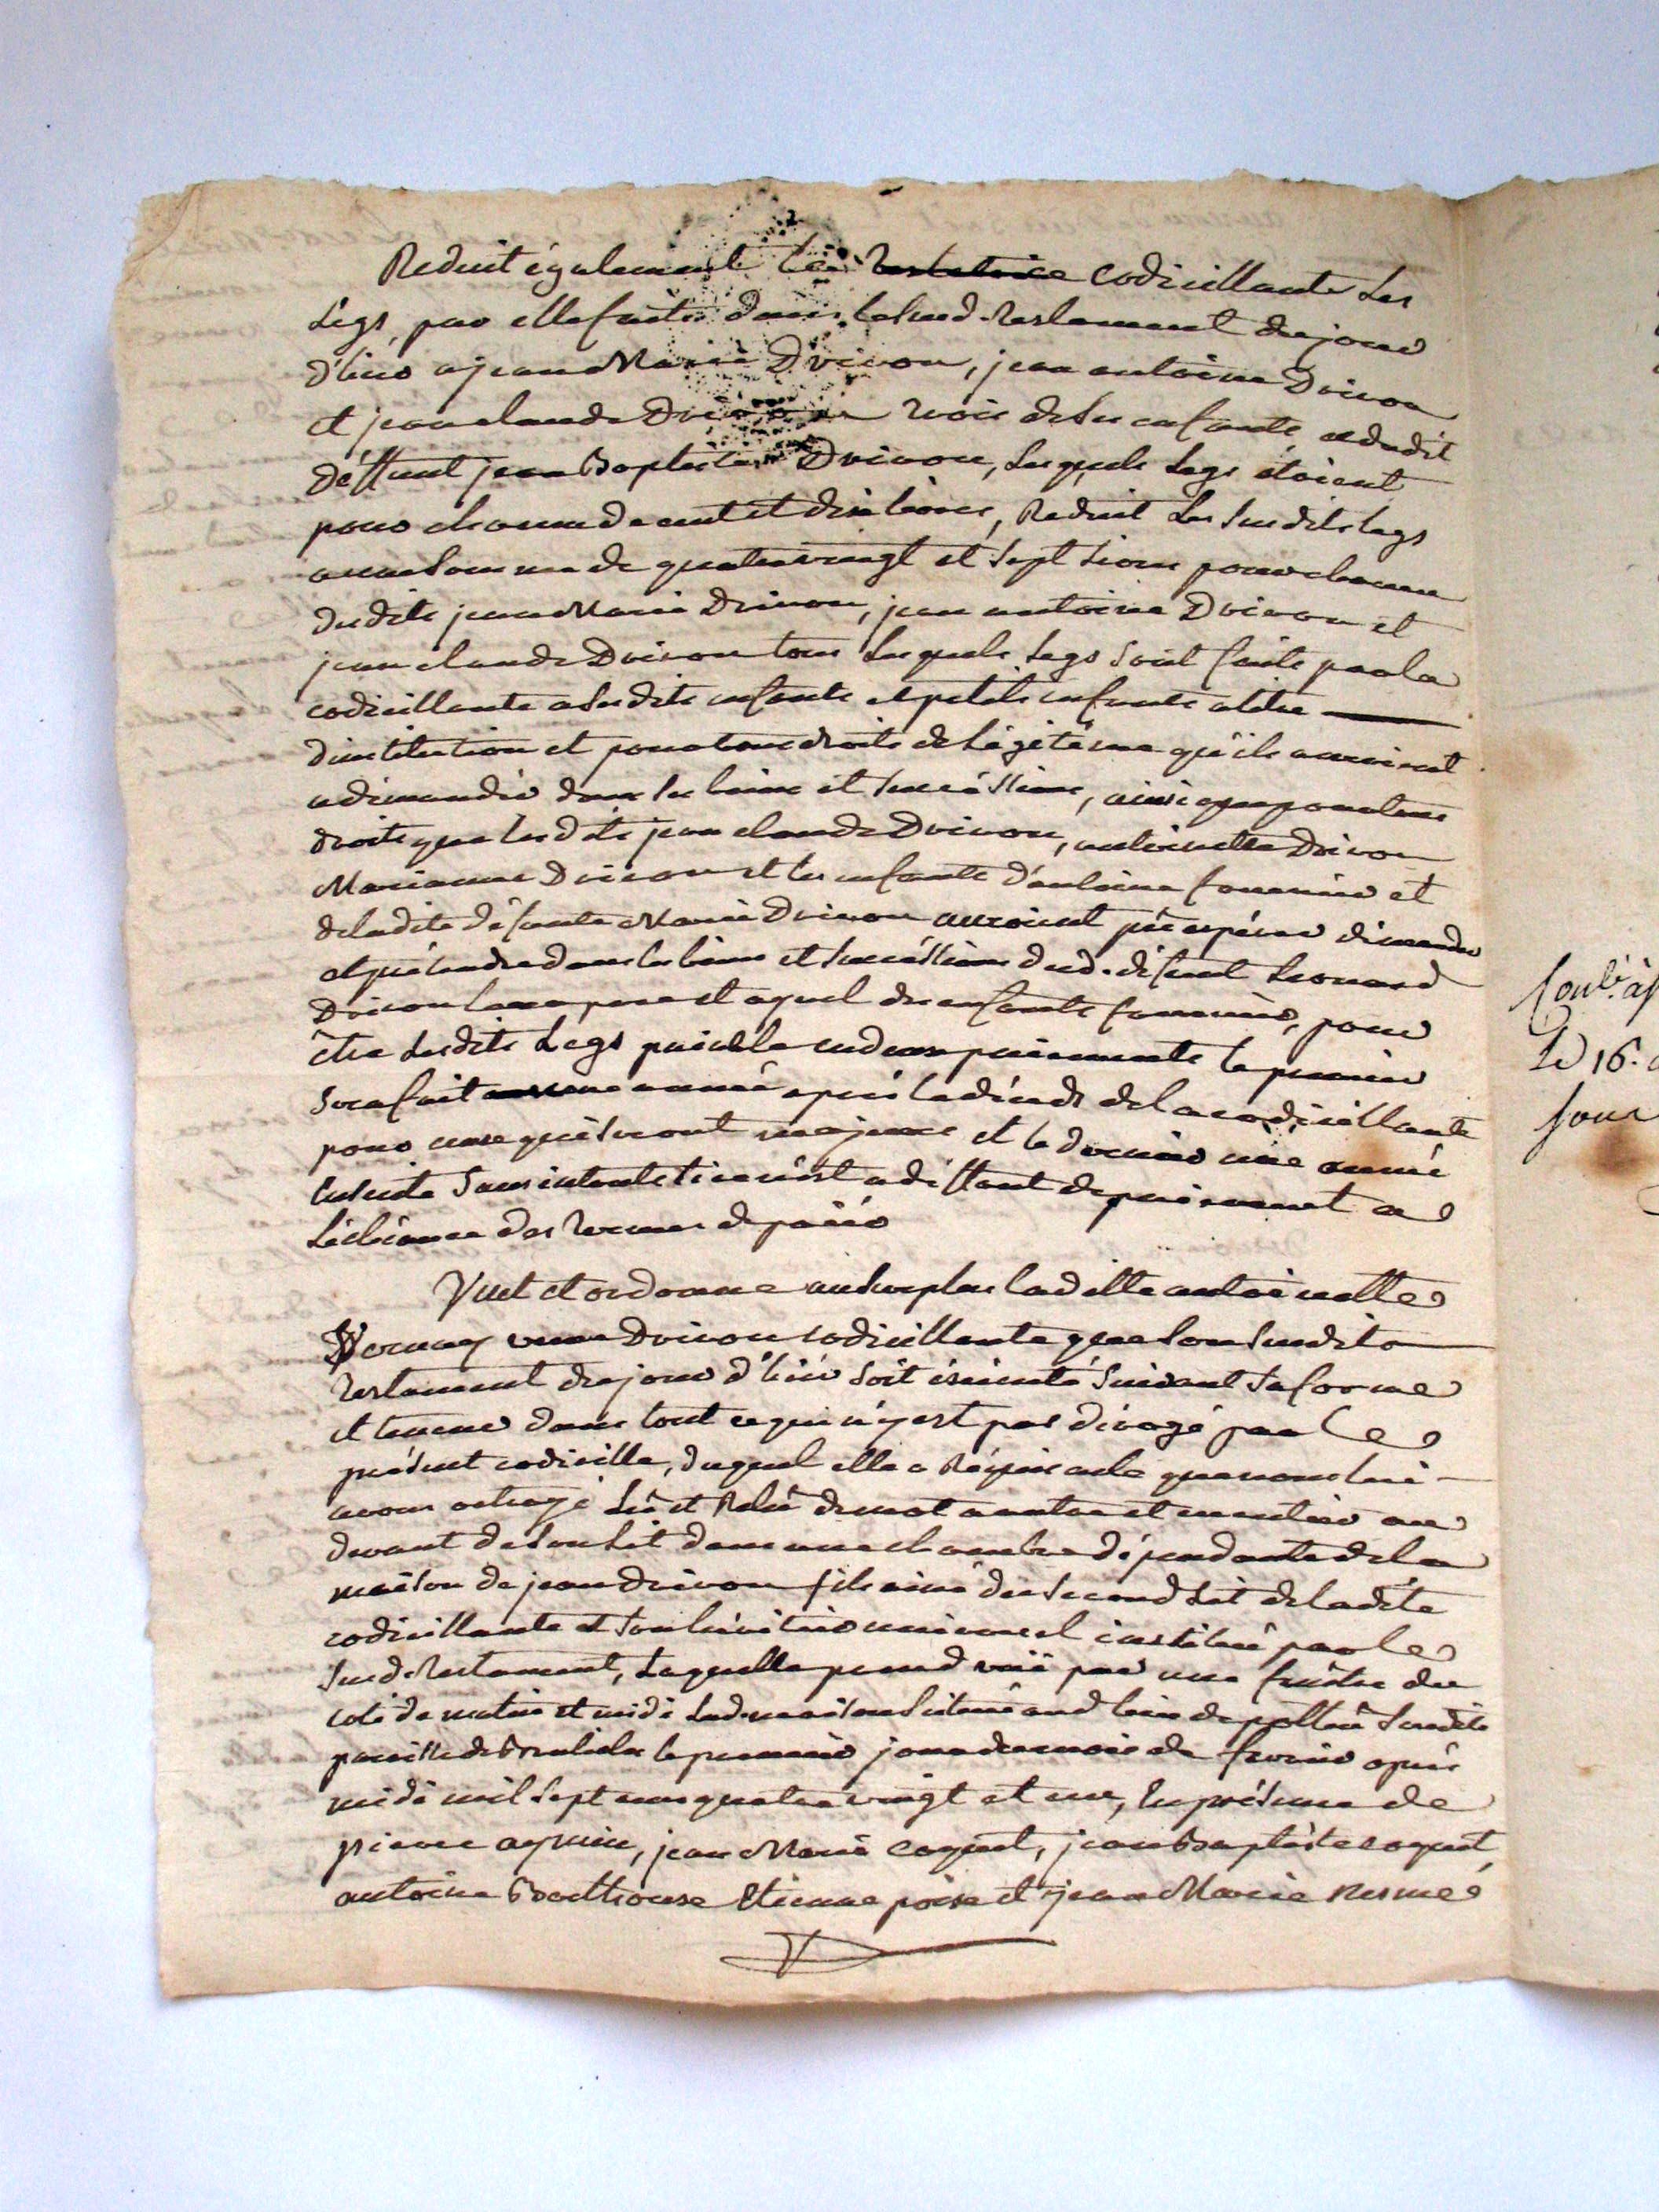 Reduit également la testatrice codicillante les
Legs, par elle faits dans le susd. testament du jour
d'hier a jean Marie Drivon, jean antoine Drivon
et jean claude Drivon trois de ses enfants et dudit
deffunt jean Baptiste Drivon, lesquels Legs étoient
pour chacun de cent et dix livres, Reduit les susdits legs
a une somme de quatre vingt et sept livres pour chacun
desdits jean Marie Drivon, jean antoine Drivon et
jean claude Drivon tous lesquels Legs sont faits par la
codicillante a sesdits enfants et petits enfants a titre
d'institution et pour tous droits de Légitime qu'ils auroient
a demander dans ses biens et succéssions, ainsi que pour tous
droits que lesdits jean claude Drivon, antoinette Drivon
Marianne Drivon et les enfants d'antoine
de ladite défunte Marie Drivon auroient pû espérer demander
et prétendre dans les biens et succéssions dud. défunt Leonard
Drivon leur pere et ayeul des enfants pour
être lesdits Legs paiable en deux paiements le premier
sera fait une année après le décès de la codicillante
pour ceux qui seront majeurs et le dernier une année
ensuite sans interets si ce n'est a deffaut de paiement a
L'échéance des termes de paié
Veut et ordonne au surplus laditte antoinette
veuve Drivon codicillante que son susdit
testament du jour d'hier soit éxécuté suivant sa forme
et teneur dans tout ce qui n'y est pas dérogé par le
présent codicille, duquel elle a Réquis acte que nous lui
avons octroyé Lû et Relû de mot a autre et au
devant de son Lit dans une chambre dépendante de la
maison de jean Drivon fils ainé du second Lit de ladite
codicillante et son héritier universel institué par le
susd. testament, Laquelle prend vuë par une fenêtre du
coté de matin et midi Lad. maison située aud. lieu de susdite
paroisse de le premier jour du mois de fevrier après
midi mil sept cens quatre vingt et un, En présence de
pierre jean Marie coquet, jean Baptiste coquet,
antoine Berthouse Etienne et jean Marie
Le 16.